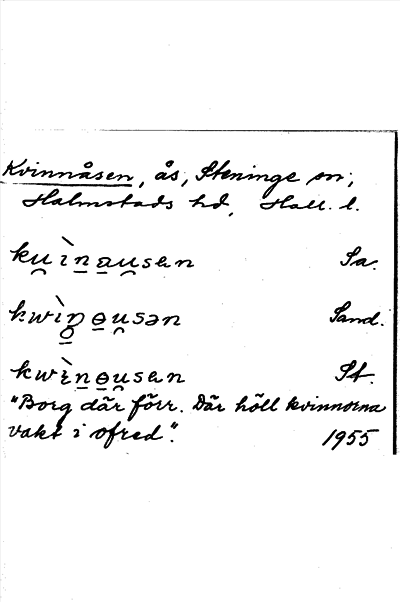 Kvinnåsen, ås, Steninge sn,
Halmstads hd, Hall. l.
ku̯ìn̲a̲u̯sen Sa.
kwìn̥̲ɵ̲u̯sən Sand.
kwɛ̀n̲ɵ̲u̯sen St.
"Borg där förr. Där höll kvinnorna
vakt i ofred". 1955